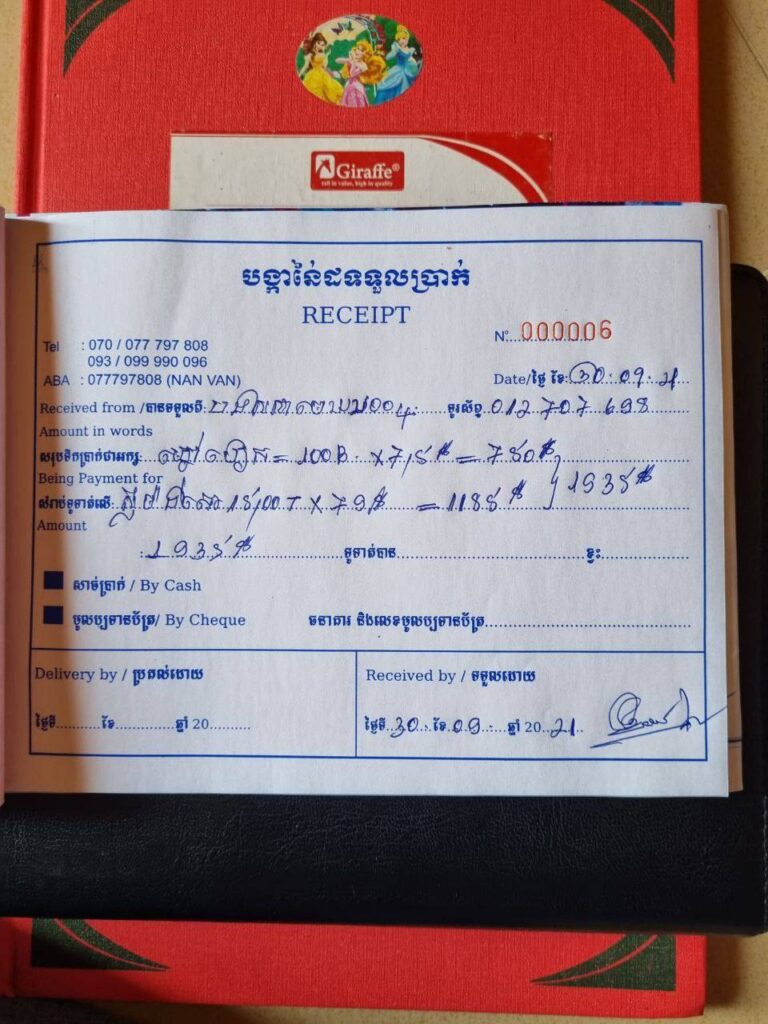 Giraffe®
tall in value, high in quality
បង្កាន់ដៃទទួលប្រាក់
RECEIPT
Nº: 000006
Tel : 070 / 077 797 808
093 / 099 990 096
ABA : 077797808 (NAN VAN)
Date/ថ្ងៃ ខែ: 30.09.21
Received from /បានទទួលពី: ទូរស័ព្ទ 012 707 698
Amount in words
សរុបទឹកប្រាក់ជាអក្សរ = 100B × 7,5$ = 750$
Being Payment for
សំរាប់ទូទាត់លើ: 15,00T × 79$ = 1185$ } 1935$
Amount
: 1935$ ទូទាត់បាន ខ្វះ
សាច់ប្រាក់ / By Cash
មូលប្បទានប័ត្រ/ By Cheque ធនាគារ និងលេខមូលប្បទានប័ត្រ
Delivery by / ប្រគល់ដោយ
Received by / ទទួលដោយ
ថ្ងៃទី ខែ ឆ្នាំ 20
ថ្ងៃទី 30 ខែ 09 ឆ្នាំ 20 21